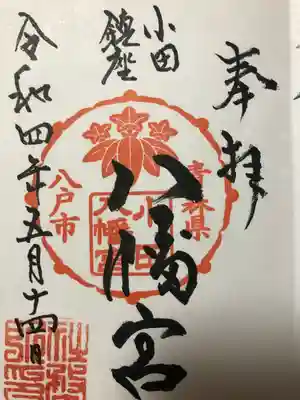 奉拝
小田
鎮座
八幡宮
青森県
八戸市
小田
八幡宮
令和四年五月十四日